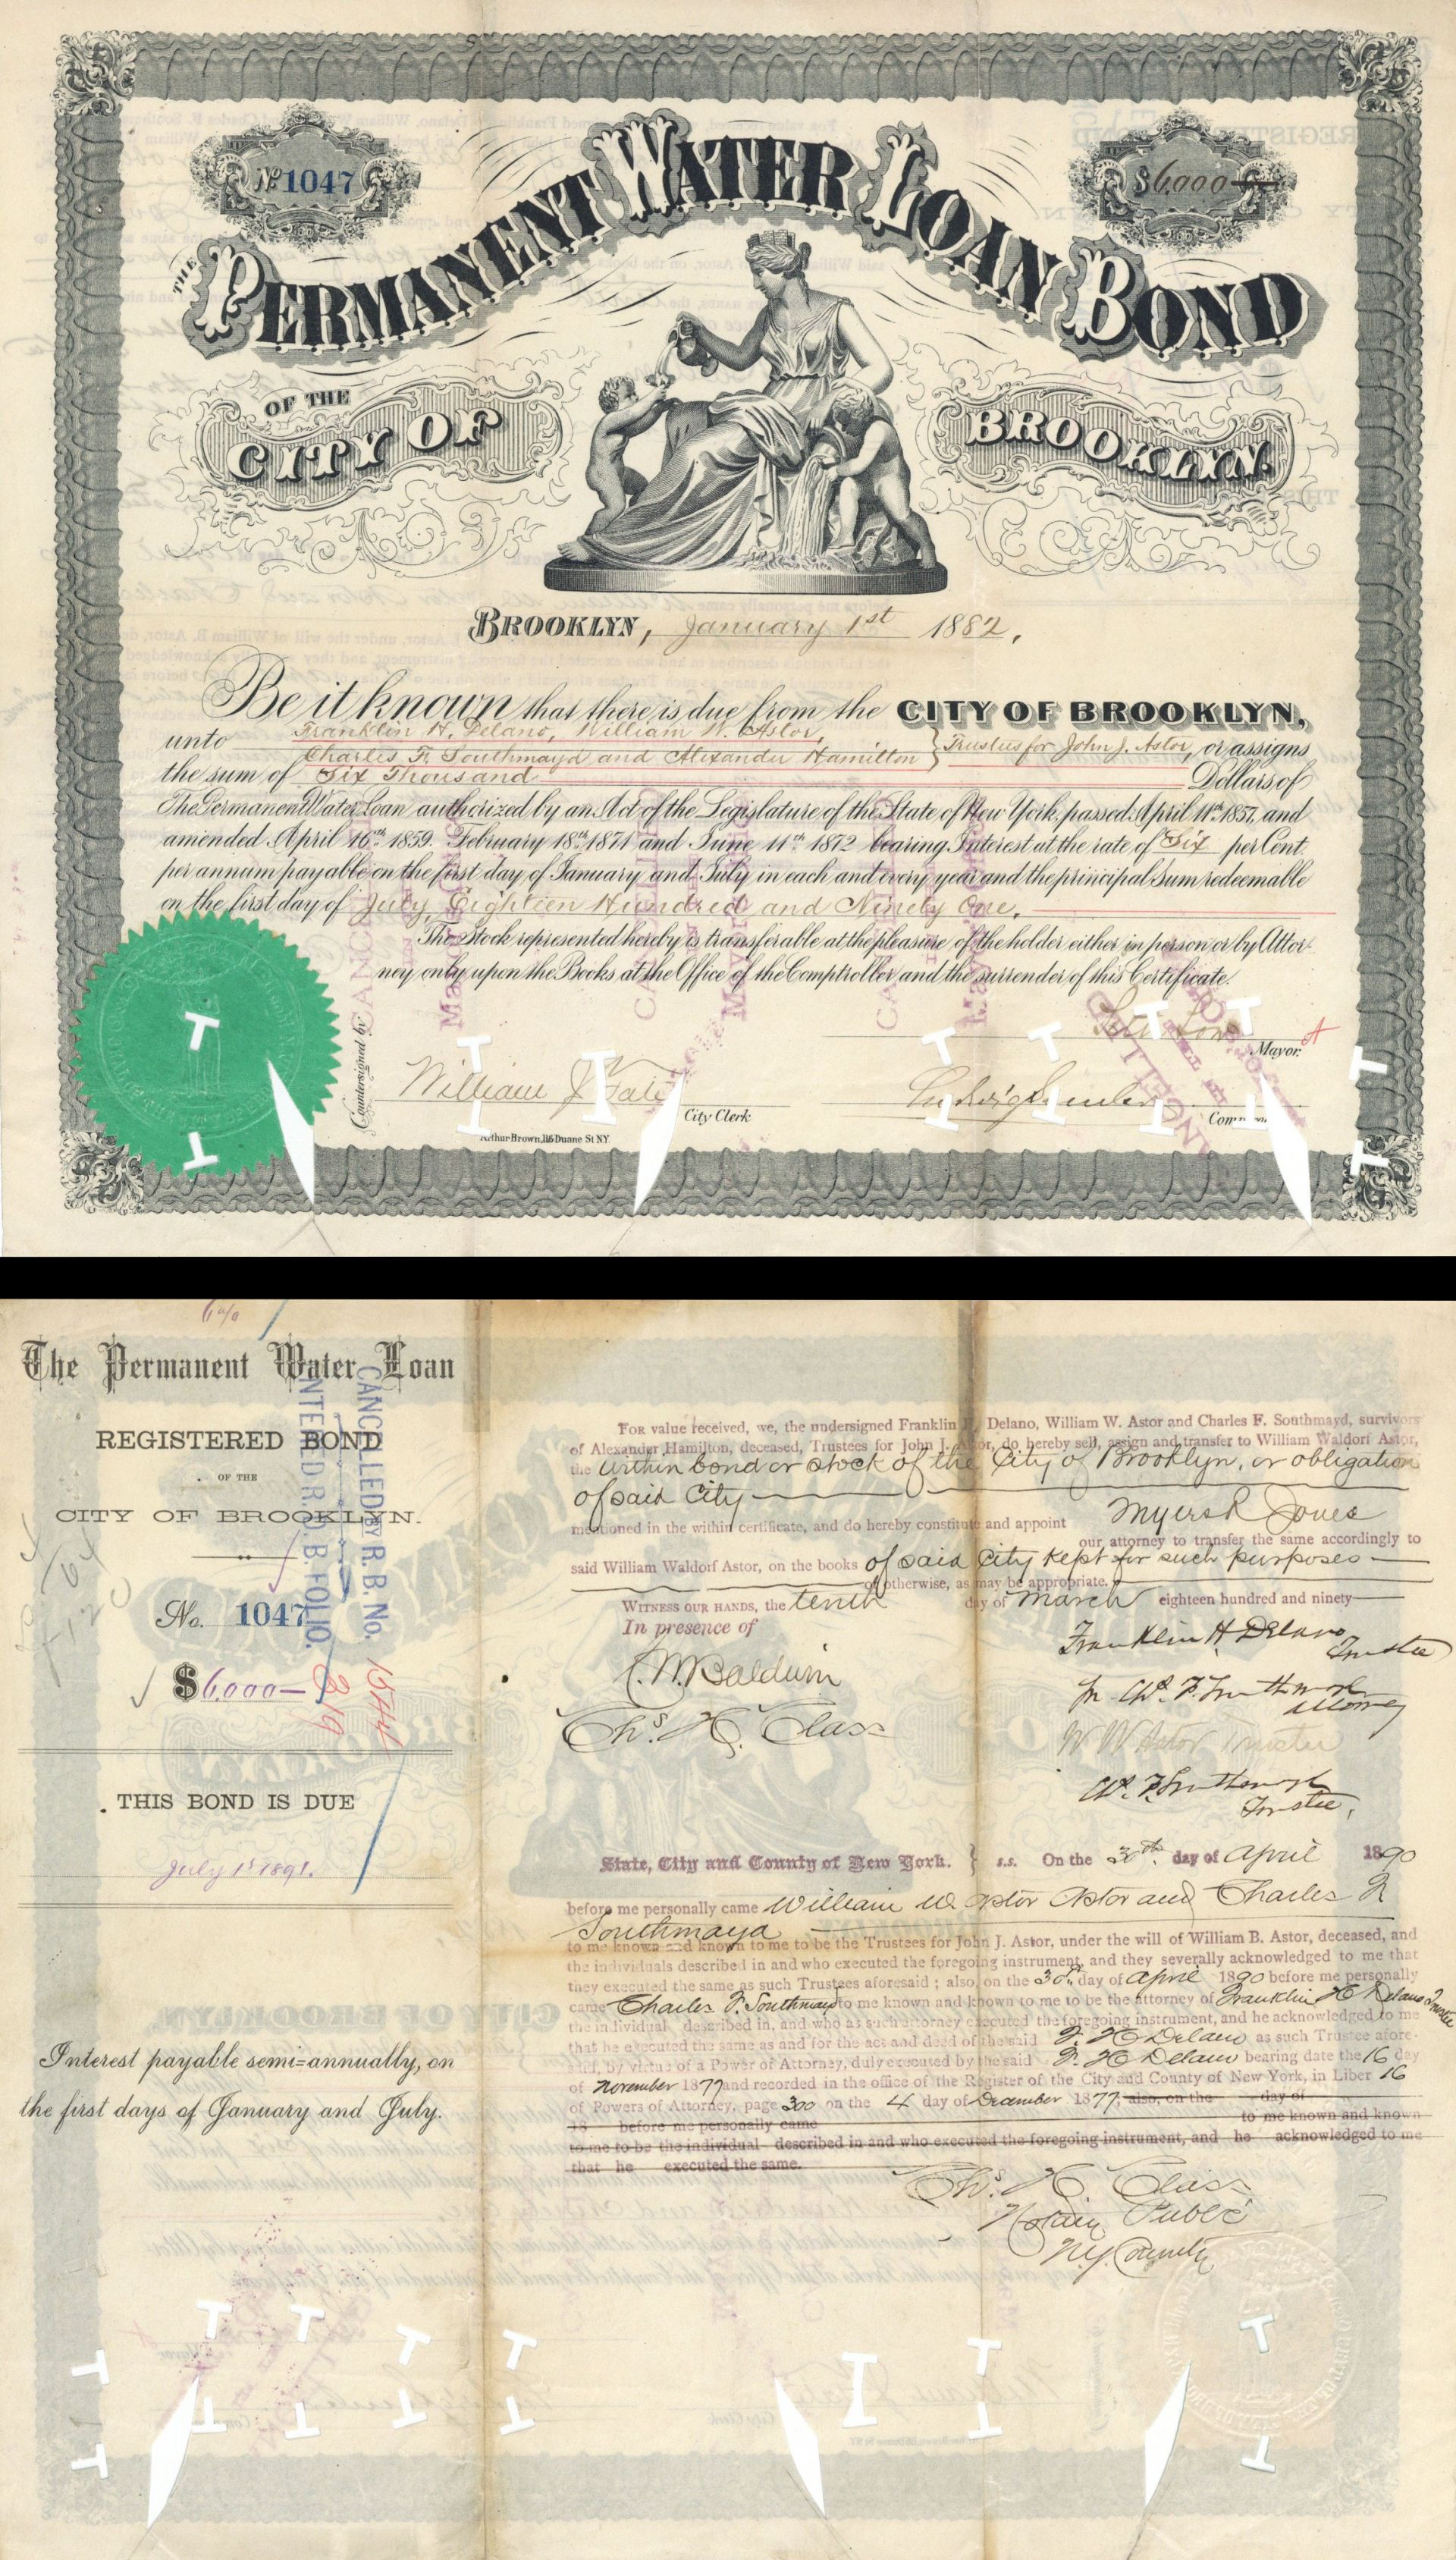 № 1047
$6,000
THE
PERMANENT WATER LOAN BOND
OF THE
CITY OF
BROOKLYN.
BROOKLYN, January 1st 1882.
Be it known that there is due from the CITY OF BROOKLYN,
unto Franklin H. Delano, William W. Astor,
Charles F. Southmayd and Alexander Hamilton } Trustees for John J. Astor, or assigns
the sum of Six Thousand Dollars of
The Permanent Water Loan authorized by an Act of the Legislature of the State of New York, passed April 11th 1857, and
amended April 16th 1859. February 18th 1871 and June 11th 1872 bearing Interest at the rate of Six per Cent.
per annum payable on the first day of January and July in each and every year and the principal Sum redeemable
on the first day of July, Eighteen Hundred and Ninety One.
The Stock represented hereby is transferable at the pleasure of the holder either in person or by Attor-
ney only upon the Books at the Office of the Comptroller and the surrender of this Certificate.
Countersigned by
Seth Low
Mayor.
William J. Tate
City Clerk
Arthur Brown, 116 Duane St NY.
6 %
The Permanent Water Loan
REGISTERED BOND
OF THE
CITY OF BROOKLYN.
CANCELLED BY R. B. No. 1544
ENTERED R. D. B. FOLIO. 219
No. 1047
$6,000—
THIS BOND IS DUE
July 1st 1891.
Interest payable semi=annually, on
the first days of January and July.
For value received, we, the undersigned Franklin H. Delano, William W. Astor and Charles F. Southmayd, survivors
of Alexander Hamilton, deceased, Trustees for John J. Astor, do hereby sell, assign and transfer to William Waldorf Astor,
the within bond or stock of the City of Brooklyn, or obligation
of said City
mentioned in the within certificate, and do hereby constitute and appoint Myers R Jones
our attorney to transfer the same accordingly to
said William Waldorf Astor, on the books of said City kept for such purposes
or otherwise, as may be appropriate.
WITNESS OUR HANDS, the tenth day of March eighteen hundred and ninety
In presence of
C. M. Baldwin
Chs. H. Class
Franklin H Delano Trustee
Attorney
W W Astor Trustee
Trustee,
State, City and County of New York. } s.s. On the 30th day of April 1890
before me personally came William W Astor Astor and Charles F
Southmayd
to me known and known to me to be the Trustees for John J. Astor, under the will of William B. Astor, deceased, and
the individuals described in and who executed the foregoing instrument, and they severally acknowledged to me that
they executed the same as such Trustees aforesaid; also, on the 30th day of April 1890 before me personally
came Charles F. Southmayd to me known and known to me to be the attorney of Franklin H Delano Trustee
the individual described in, and who as such attorney executed the foregoing instrument, and he acknowledged to me
that he executed the same as and for the act and deed of the said F. H Delano as such Trustee afore-
said, by virtue of a Power of Attorney, duly executed by the said F. H Delano bearing date the 16 day
of November 1877 and recorded in the office of the Register of the City and County of New York, in Liber 16
of Powers of Attorney, page 300 on the 4 day of December 1877, also, on the day of
18 before me personally came to me known and known
to me to be the individual described in and who executed the foregoing instrument, and he acknowledged to me
that he executed the same.
Chs. H. Class
Notary Public
N.Y. County